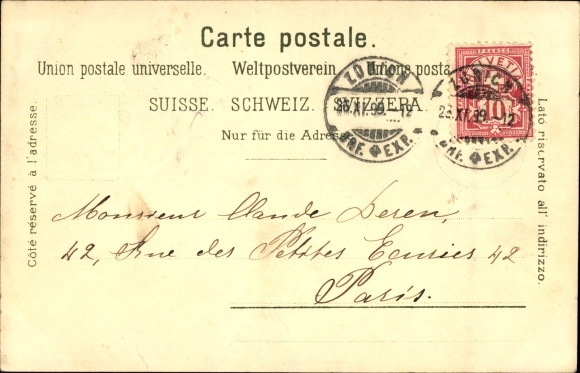 Carte postale.
Union postale universelle. Weltpostverein. Unione posta
SUISSE. SCHWEIZ. SVIZZERA
Nur für die Adresse
Côté réservé à l'adresse.
Lato riservato all' indirizzo.
ZÜRICH
XI.99.-12
BRF. EXP.
FRANCO
HELVETIA
10
ZÜRICH
XI.99.-12
BRF. EXP.
Monsieur Claude Deren,
42, Rue des Petites Ecuries 42
Paris.